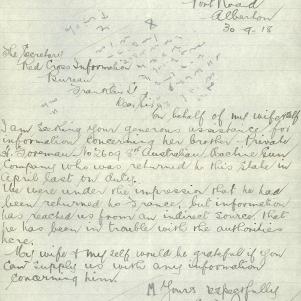 Port Road
Alberton
30-9-18
The Secretary
Red Cross Information
Bureau
Franklin St
Dear Sir
On behalf of my wife & self
I am seeking your generous assistance for
information concerning her brother - Private
H. Foreman No 2609 3rd Australian Machine Gun
Company who was returned to this State in
April last on duty.
We were under the impression that he had
been returned to France, but information
has reached us from an indirect source, that
he has been in trouble with the authorities
here.
My wife & myself would be grateful if you
can supply us with any information
concerning him.
Yours respectfully